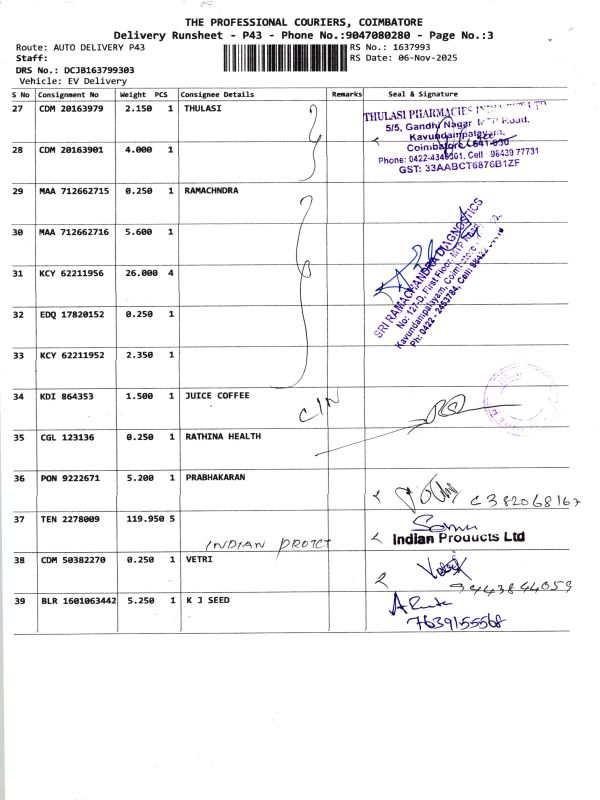 THE PROFESSIONAL COURIERS, COIMBATORE
Delivery Runsheet - P43 - Phone No.:9047080280 - Page No.:3
Route: AUTO DELIVERY P43
RS No.: 1637993
Staff:
RS Date: 06-Nov-2025
DRS No.: DCJB163799303
Vehicle: EV Delivery
S No Consignment No Weight PCS Consignee Details Remarks Seal & Signature
27 CDM 20163979 2.150 1 THULASI
THULASI PHARMACIES INDIA PVT LTD
5/5, Gandhi Nagar MTP Road,
Kavundampalayam,
Coimbatore - 641 030
Phone: 0422-4346001, Cell : 98439 77731
GST: 33AABCT6876B1ZF
28 CDM 20163901 4.000 1
29 MAA 712662715 0.250 1 RAMACHNDRA
30 MAA 712662716 5.600 1
SRI RAMACHANDRA DIAGNOSTICS
No: 127-D, First Floor, MTP Road
Kavundampalayam, Coimbatore
Ph: 0422 - 2453784, Cell: 98422
31 KCY 62211956 26.000 4
32 EDQ 17820152 0.250 1
33 KCY 62211952 2.350 1
34 KDI 864353 1.500 1 JUICE COFFEE
C/N
35 CGL 123136 0.250 1 RATHINA HEALTH
36 PON 9222671 5.200 1 PRABHAKARAN
C382068167
37 TEN 2278009 119.950 5
INDIAN PROTCT
Indian Products Ltd
38 CDM 50382270 0.250 1 VETRI
9443844059
39 BLR 1601063442 5.250 1 K J SEED
7639155568